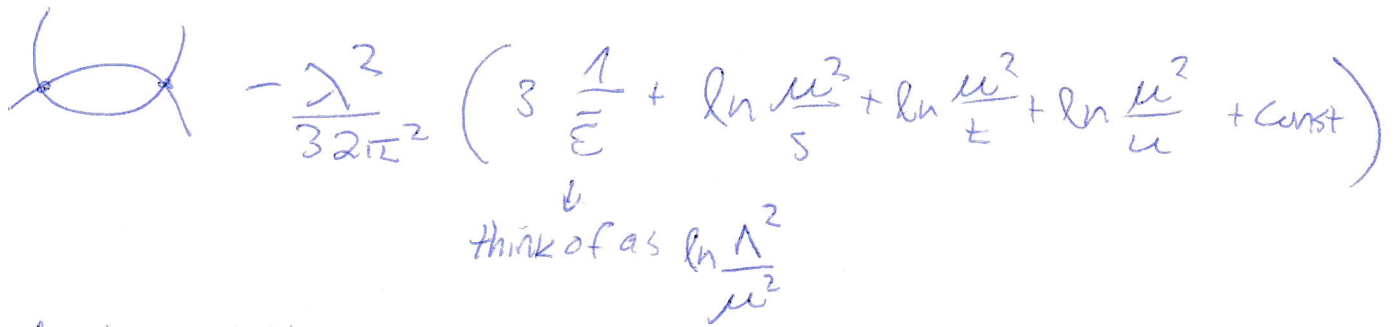 - λ²/32π² ( 3 1/ε̄ + ln μ²/s + ln μ²/t + ln μ²/u + const )
↓
think of as ln Λ²/μ²